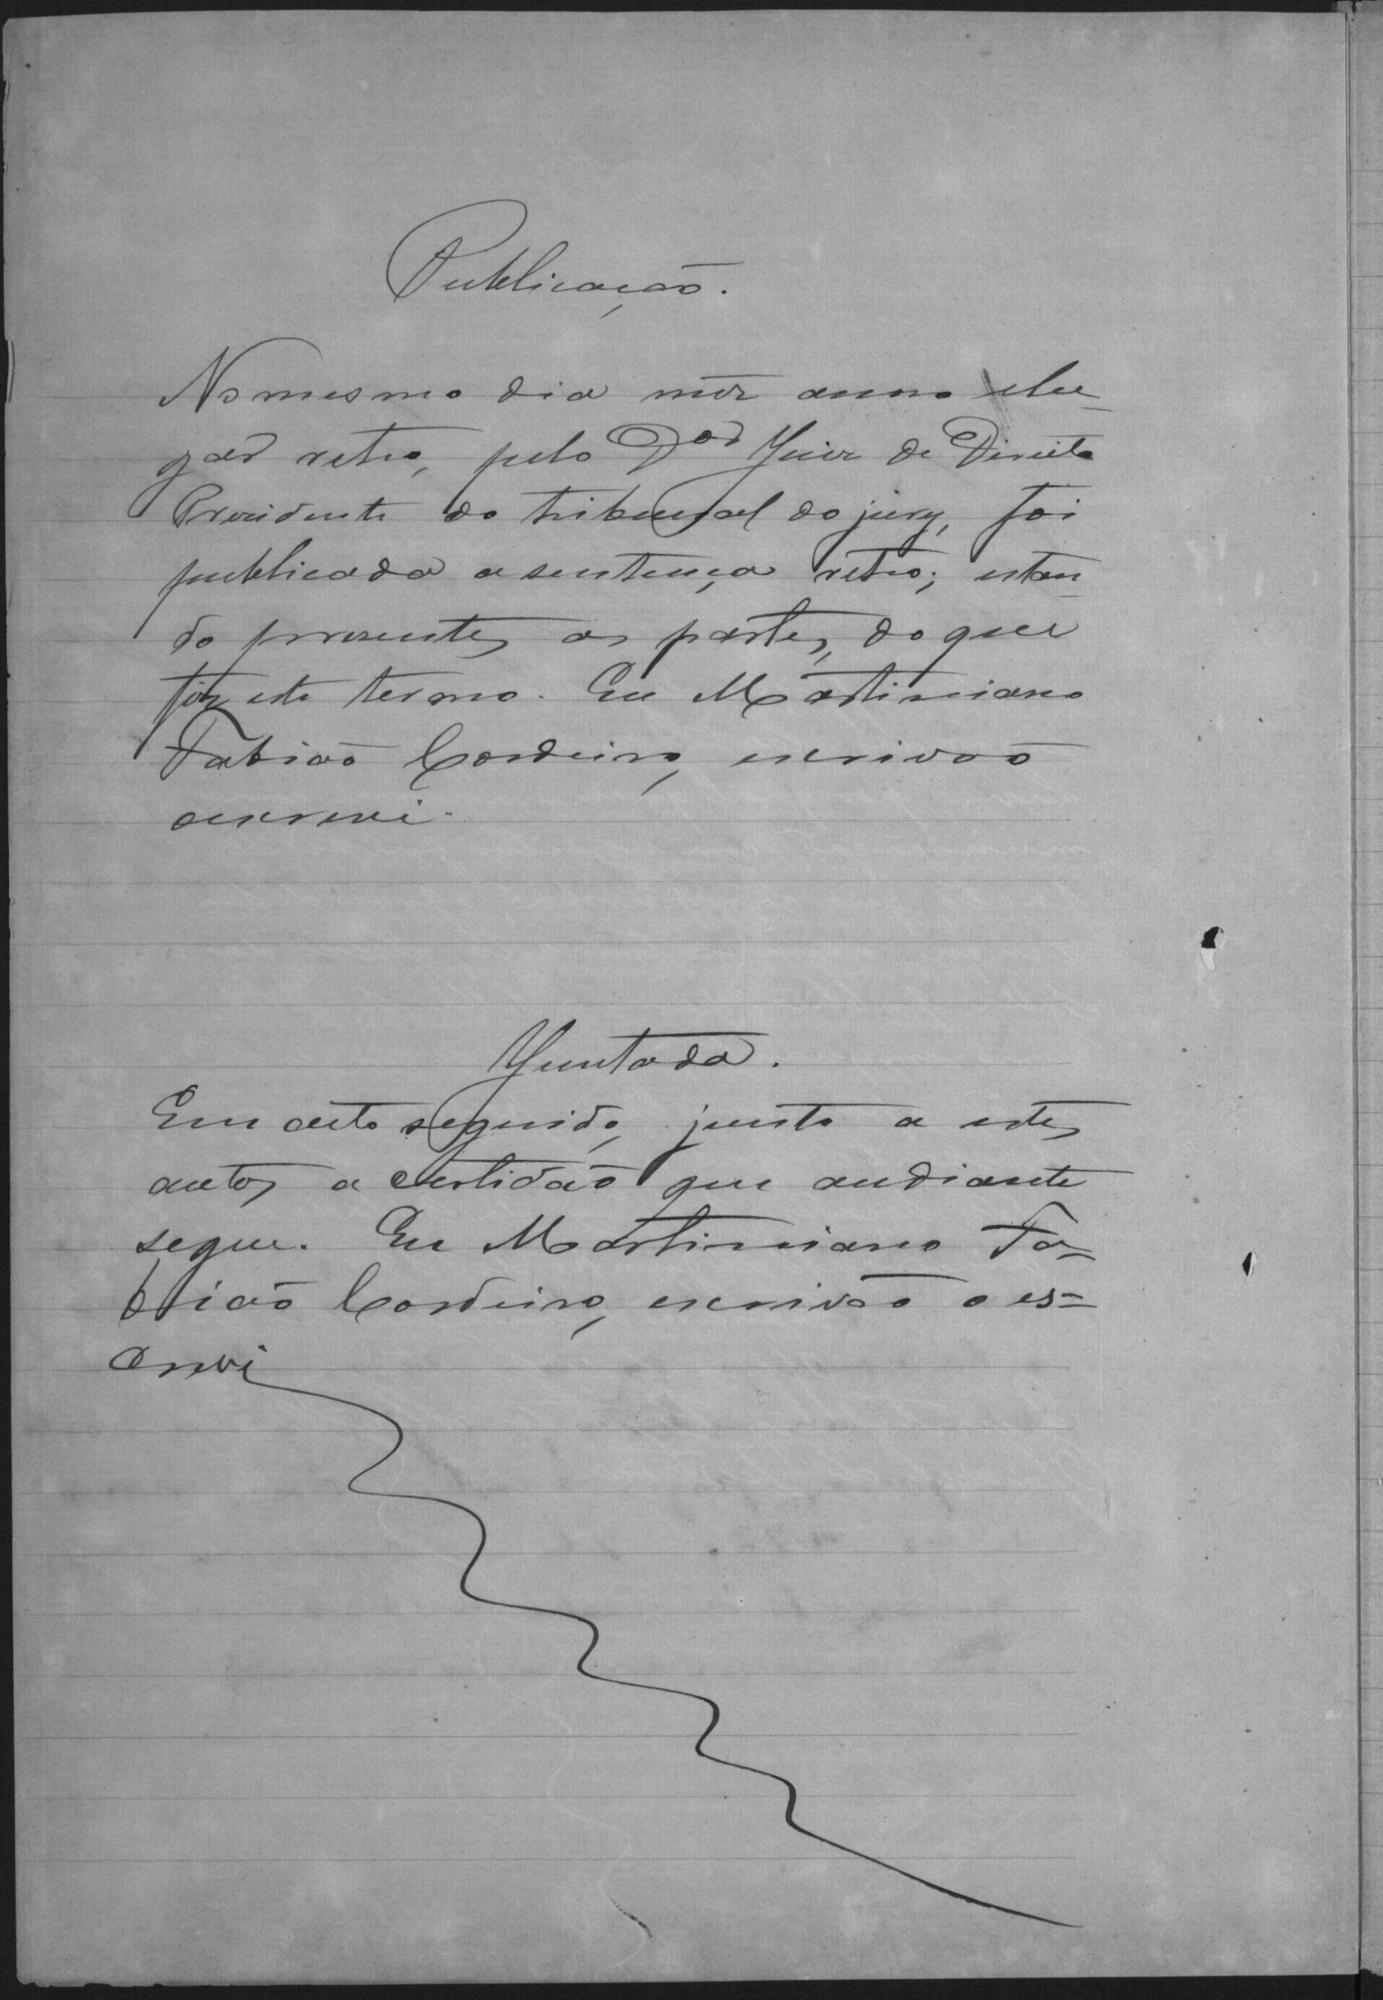 Publicação.
No mesmo dia mez anno e lu-
gar retro, pelo Dor Juiz de Direito
Prezidente do tribunal do jury, foi
publicada a sentença retro; estan-
do prezentes as partes, do que
fiz este termo. Eu Martiniano
Fabião Cordeiro, escrivão
oescrevi.
Juntada.
Em acto seguido, junto a estes
autos a certidão que audiante
segue. Eu Martiniano Fa=
bião Cordeiro, escrivão o es=
crevi